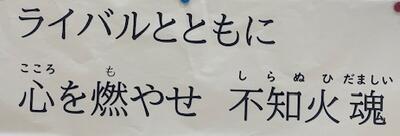 ライバルとともに
こころ も しらぬひ だましい
心を燃やせ 不知火魂